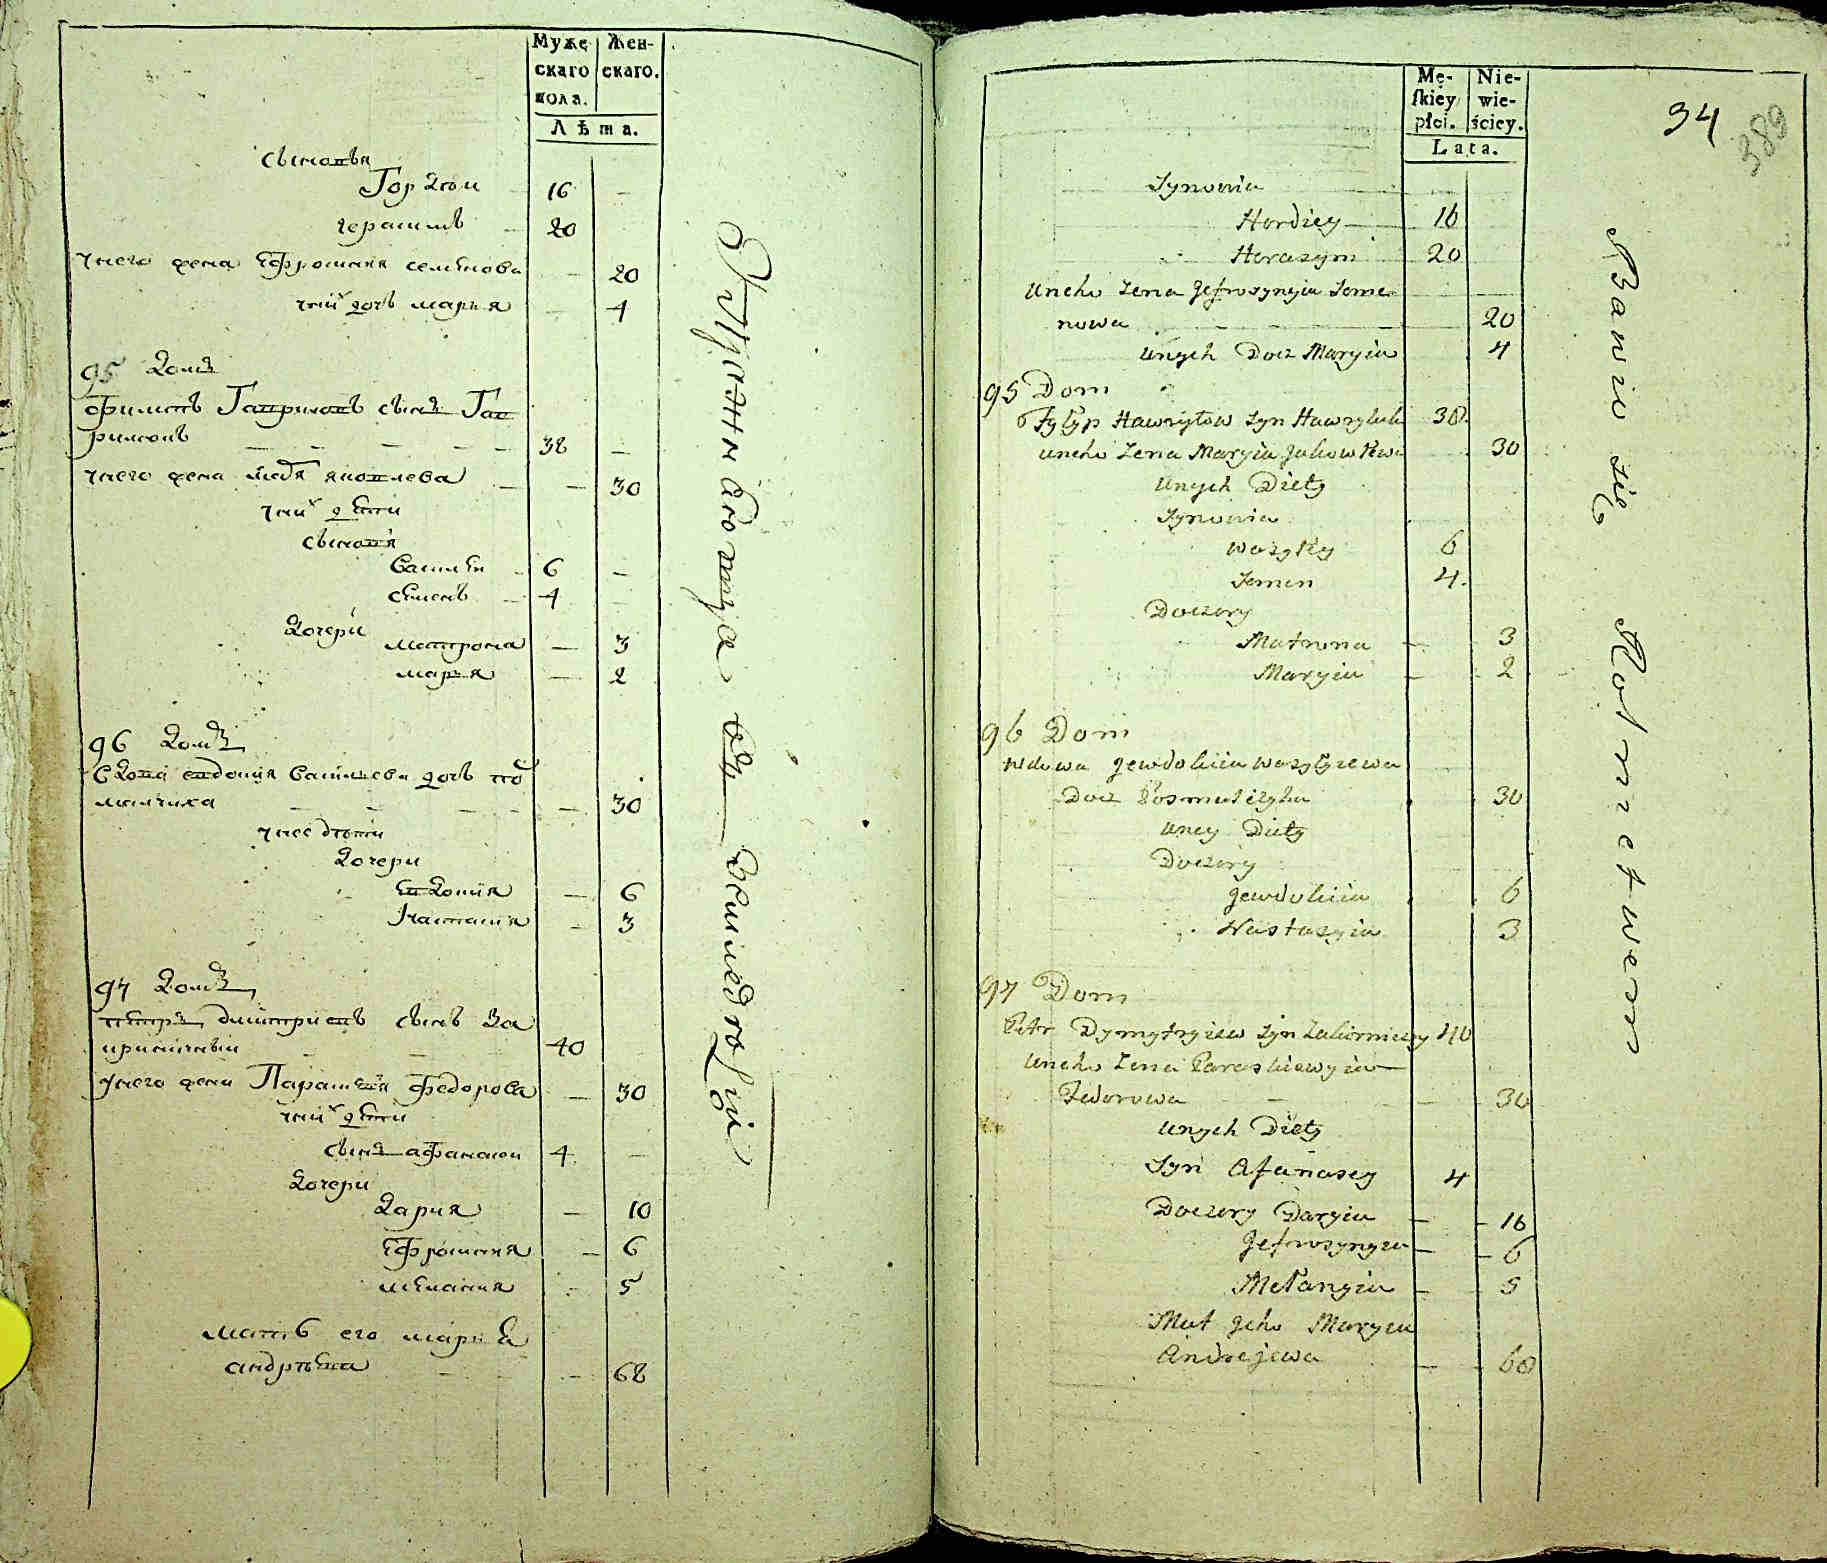 Муже
скаго
пола.
Жен-
скаго.
Лѣта.
сыновья
Гордѣи 16 –
герасимъ 20
унего жена Ефросиния семенова – 20
унихъ дочь марья – 4
95 домъ
Филипъ Гавриловъ сынъ Гав
риловъ 38 –
унего жена марья яковлева – 30
унихъ дѣти
сыновя
Василеи 6 –
семенъ 4 –
дочери
матрона – 3
марья – 2
96 домъ
вдова евдокия васильева дочь
– 30
унее дѣти
дочери
Евдокия – 6
Настасия – 3
97 домъ
петръ дмитриевъ сынъ За
40
унего жена Парасковия Федорова – 30
унихъ дѣти
сынъ афанасеи 4 –
дочери
дария – 10
Ефросиния – 6
мелания – 5
мать его марья
андрѣева – 68
Упражняютца въ земледелій
Mę-
ſkiéy
płci.
Nie-
wie-
ściey.
Lata.
34
389
Synowia
Hordiey 16
Herasym 20
Uneho Zena Jefrosynyia Seme
nowa 20
Unych Docz Maryia 4
95 Dom
Fyłyp Hawryłow Syn Hawryluk 38
Uneho Zena Maryia Jakowlewa 30
Unych Diety
Synowia
Wasyley 6
Semen 4
Doczery
Matrona – 3
Maryia – 2
96 Dom
Wdowa Jewdokiia Wasylyiewa
Docz 30
Uney Diety
Doczery
Jewdokiia 6
Nastasyia 3
97 Dom
Petr Dymytryiew Syn 40
Uneho Zena Paraskiewyia
Fedorowa 30
Unych Diety
Syn Afanasey 4
Doczery Daryia – 10
Jefrosynyia – 6
Melanyia – 5
Mat Jeho Maryia
Andrejewa – 68
Bawio się Rolnictwem